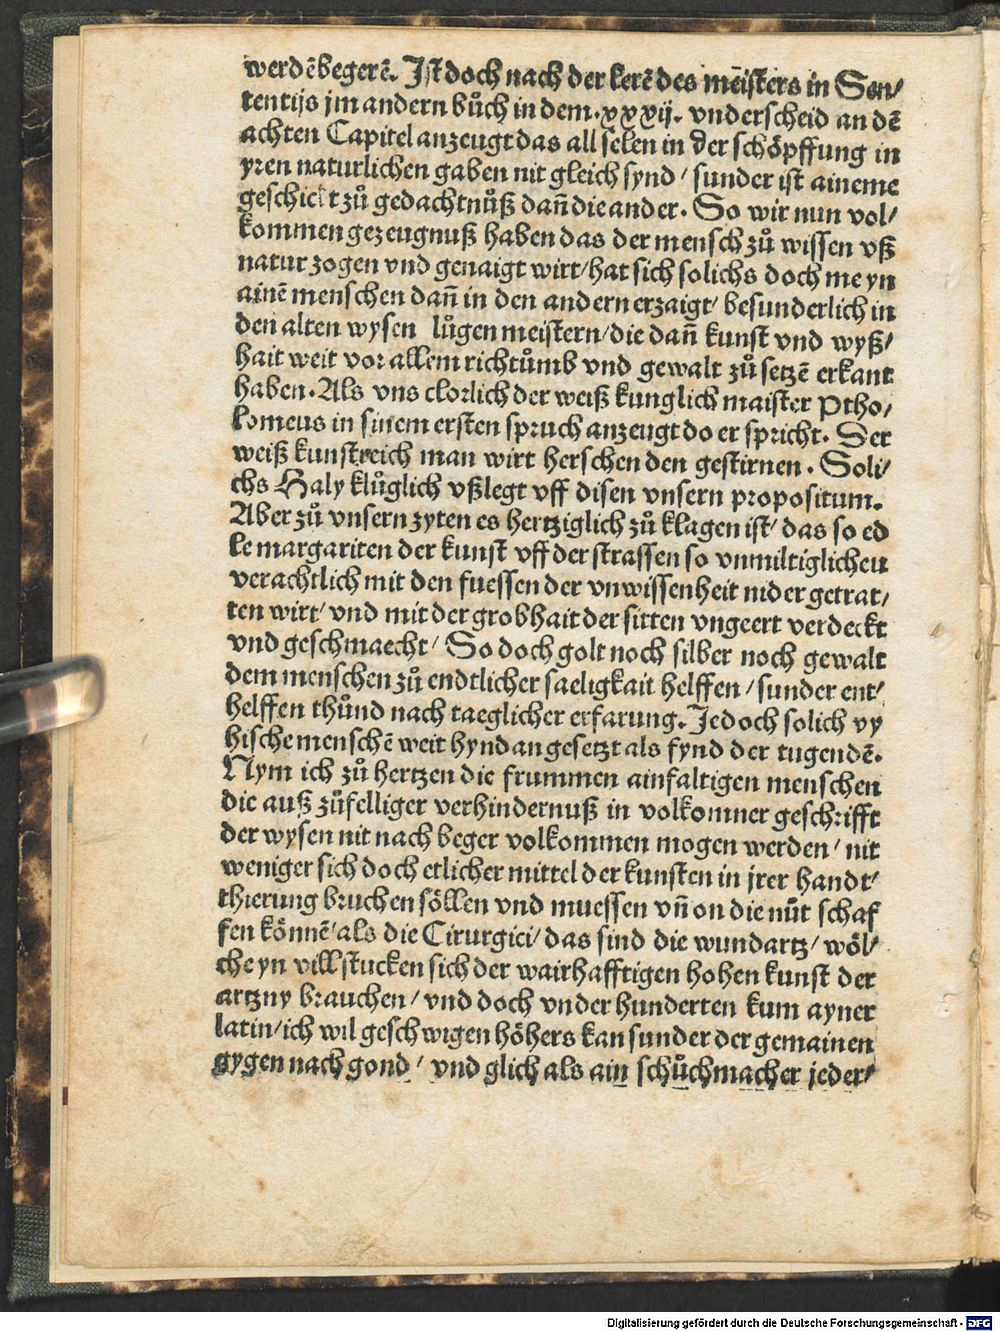 werdē begerē. Jst doch nach der lerē des mēisters in Sen⸗
tentijs jm andern bůch in dem. xxxij. vnderscheid an dē
achten Capitel anzeugt das all selen in der schöpffung in
yren naturlichen gaben nit gleich synd / sunder ist aineme
geschickt zů gedachtnůß dañ die ander. So wir nun vol⸗
kommen gezeugnuß haben das der mensch zů wissen vß
natur zogen vnd genaigt wirt / hat sich solichs doch me yn
ainē menschen dañ in den andern erzaigt / besunderlich in
den alten wysen lůgen meistern / die dañ kunst vnd wyß⸗
hait weit vor allem richtůmb vnd gewalt zů setzē erkant
haben. Als vns clorlich der weiß kunglich maister Ptho⸗
lomeus in sinem ersten spruch anzeugt do er spricht. Der
weiß kunstreich man wirt herschen den gestirnen. Soli⸗
chs Haly klůglich vßlegt vff disen vnsern propositum.
Aber zů vnsern zyten es hertziglich zů klagen ist / das so ed
le margariten der kunst vff der strassen so vnmiltiglichen
verachtlich mit den fuessen der vnwissenheit nider getrat⸗
ten wirt / vnd mit der grobhait der sitten vngeert verdeckt
vnd geschmaecht / So doch golt noch silber noch gewalt
dem menschen zů endtlicher saeligkait helffen / sunder ent⸗
helffen thůnd nach taeglicher erfarung. Jedoch solich vy
hische menschē weit hyndan gesetzt als fynd der tugendē.
Nym ich zů hertzen die frummen ainfaltigen menschen
die auß zůfelliger verhindernuß in volkomner geschrifft
der wysen nit nach beger volkommen mogen werden / nit
weniger sich doch etlicher mittel der kunsten in jrer handt⸗
thierung bruchen söllen vnd muessen vñ on die nüt schaf
fen könnē / als die Cirurgici / das sind die wundartz / wöl⸗
che yn vill stucken sich der wairhafftigen hohen kunst der
artzny brauchen / vnd doch vnder hunderten kum ayner
latin / ich wil geschwigen höhers kan sunder der gemainen
gygen nach gond / vnd glich als ain schůchmacher jeder⸗
Digitalisierung gefördert durch die Deutsche Forschungsgemeinschaft - DFG